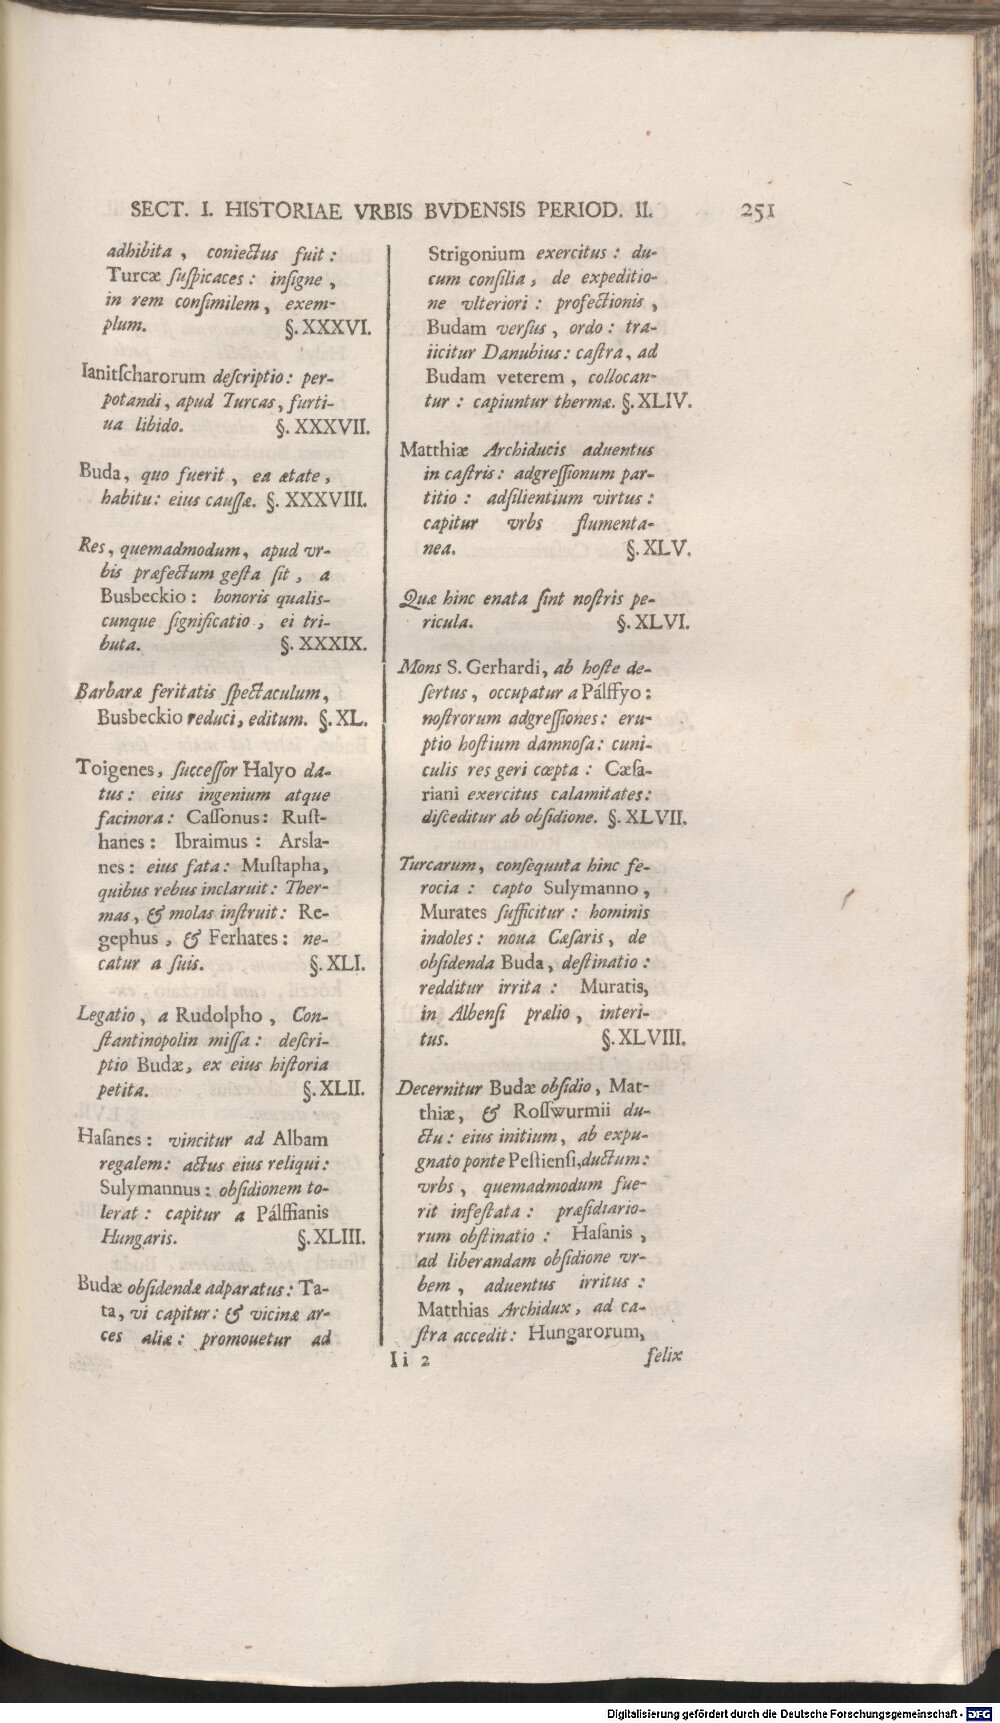 SECT. I. HISTORIAE VRBIS BVDENSIS PERIOD. II. 251
adhibita, coniectus fuit:
Turcæ ſuſpicaces: inſigne,
in rem conſimilem, exem-
plum. §. XXXVI.
Ianitſcharorum deſcriptio: per-
potandi, apud Turcas, furti-
ua libido. §. XXXVII.
Buda, quo fuerit, ea ætate,
habitu: eius cauſſæ. §. XXXVIII.
Res, quemadmodum, apud vr-
bis præfectum geſta ſit, a
Busbeckio: honoris qualis-
cunque ſignificatio, ei tri-
buta. §. XXXIX.
Barbaræ feritatis ſpectaculum,
Busbeckio reduci, editum. §. XL.
Toigenes, ſucceſſor Halyo da-
tus: eius ingenium atque
facinora: Caſſonus: Ruſt-
hanes: Ibraimus: Arsla-
nes: eius fata: Muſtapha,
quibus rebus inclaruit: Ther-
mas, & molas inſtruit: Re-
gephus, & Ferhates: ne-
catur a ſuis. §. XLI.
Legatio, a Rudolpho, Con-
ſtantinopolin miſſa: deſcri-
ptio Budæ, ex eius hiſtoria
petita. §. XLII.
Haſanes: vincitur ad Albam
regalem: actus eius reliqui:
Sulymannus: obſidionem to-
lerat: capitur a Pálffianis
Hungaris. §. XLIII.
Budæ obſidendæ adparatus: Ta-
ta, vi capitur: & vicinæ ar-
ces aliæ: promouetur ad
Strigonium exercitus: du-
cum conſilia, de expeditio-
ne vlteriori: profectionis,
Budam verſus, ordo: tra-
iicitur Danubius: caſtra, ad
Budam veterem, collocan-
tur: capiuntur thermæ. §. XLIV.
Matthiæ Archiducis aduentus
in caſtris: adgreſſionum par-
titio: adſilientium virtus:
capitur vrbs flumenta-
nea. §. XLV.
Quæ hinc enata ſint noſtris pe-
ricula. §. XLVI.
Mons S. Gerhardi, ab hoſte de-
ſertus, occupatur a Pálffyo:
noſtrorum adgreſſiones: eru-
ptio hoſtium damnoſa: cuni-
culis res geri cœpta: Cæſa-
riani exercitus calamitates:
diſceditur ab obſidione. §. XLVII.
Turcarum, conſequuta hinc fe-
rocia: capto Sulymanno,
Murates ſufficitur: hominis
indoles: noua Cæſaris, de
obſidenda Buda, deſtinatio:
redditur irrita: Muratis,
in Albenſi prælio, interi-
tus. §. XLVIII.
Decernitur Budæ obſidio, Mat-
thiæ, & Roſſwurmii du-
ctu: eius initium, ab expu-
gnato ponte Peſtienſi, ductum:
vrbs, quemadmodum fue-
rit infeſtata: præſidiario-
rum obſtinatio: Haſanis,
ad liberandam obſidione vr-
bem, aduentus irritus:
Matthias Archidux, ad ca-
ſtra accedit: Hungarorum,
I i 2 felix
Digitalisierung gefördert durch die Deutsche Forschungsgemeinschaft - DFG